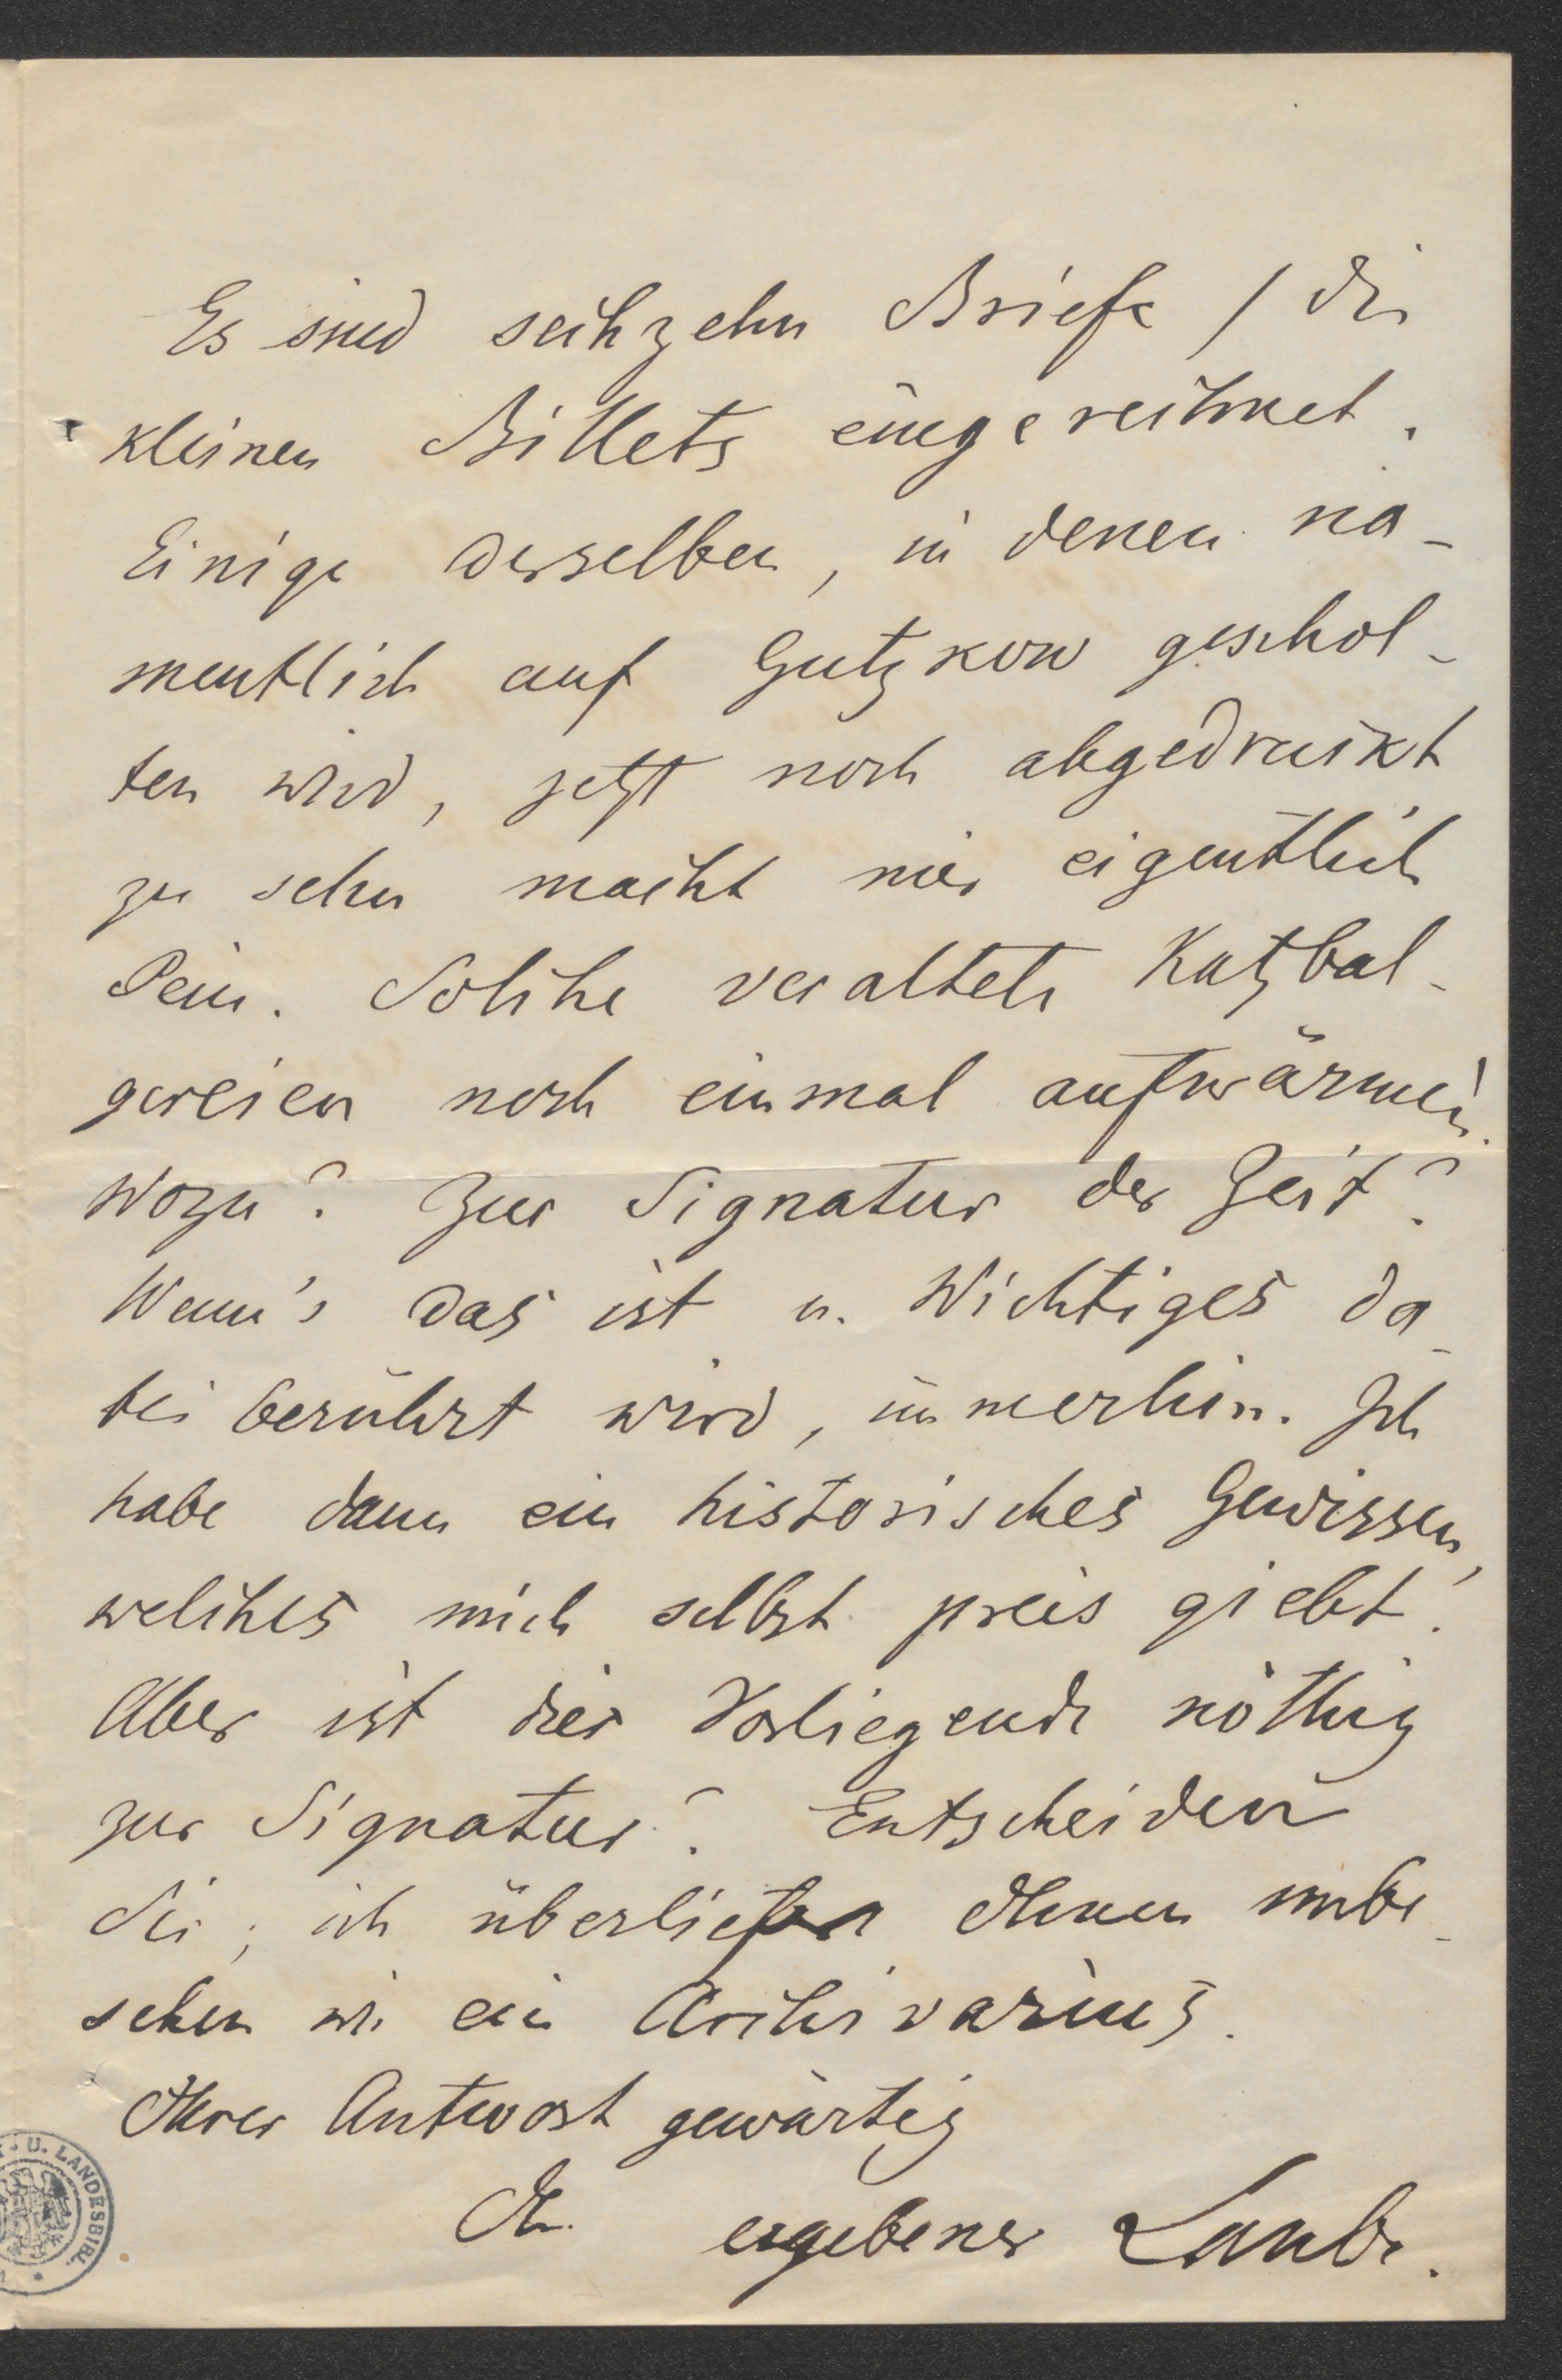 Es sind sechzehn Briefe / die
kleinen Billets eingerechnet.
Einige derselben, in denen na-
mentlich auf Gutzkow geschol-
ten wird, jetzt noch abgedruckt
zu sehn macht mir eigentlich
Pein. Solche veraltete Katzbal-
gereien noch einmal aufwärmen!
Wozu? Zur Signatur der Zeit?
Wenn's das ist u. Wichtiges da-
bei berührt wird, immerhin. Ich
habe dann ein historisches Gewissen,
welches mich selbst preis giebt.
Aber ist dies Vorliegende nöthig
zur Signatur? Entscheiden
Sie; ich überliefere Ihnen unbe-
sehen wie ein Archivarius.
Ihrer Antwort gewärtig
Ihr ergebener Laube.
U. LANDESBIBL.